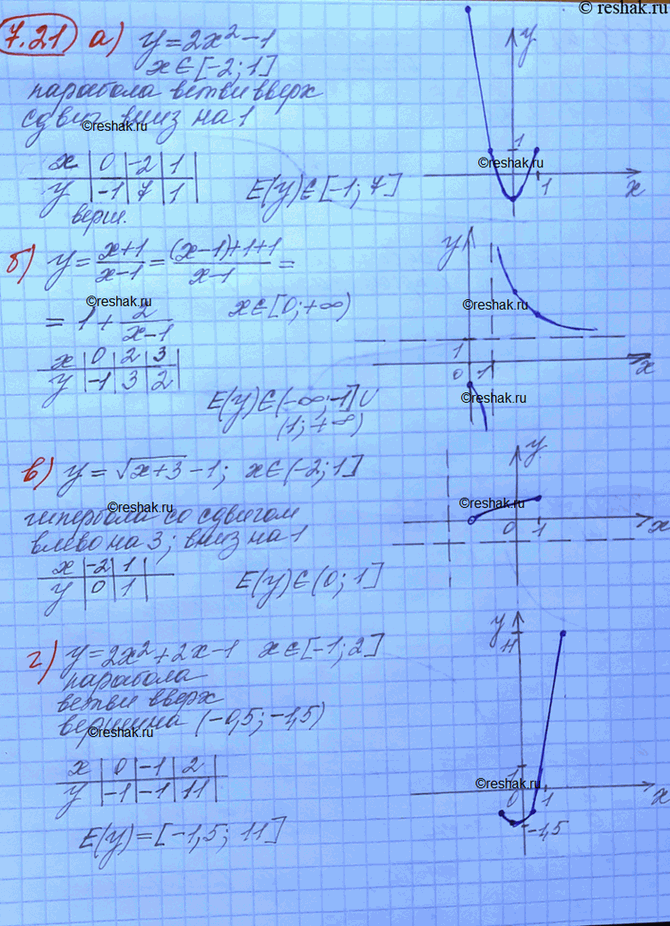 © reshak.ru
7.21) а) y = 2x² - 1
x ∈ [-2; 1]
парабола ветви вверх
сдвиг вниз на 1
©reshak.ru
x | 0 | -2 | 1 |
y | -1 | 7 | 1 |
верш.
E(y) ∈ [-1; 7]
y
1
©reshak.ru
1
x
б) y = x+1/x-1 = (x-1)+1+1/x-1 =
©reshak.ru
= 1 + 2/x-1 x ∈ [0; +∞)
x | 0 | 2 | 3 |
y | -1 | 3 | 2 |
E(y) ∈ (-∞; -1] ∪
(1; +∞)
y
©reshak.ru
1
0 1 x
©reshak.ru
в) y = √x+3 - 1; x ∈ (-2; 1]
©reshak.ru
гипербола со сдвигом
влево на 3; вниз на 1
x | -2 | 1 |
y | 0 | 1 |
E(y) ∈ (0; 1]
y
©reshak.ru
0 1 x
г) y = 2x² + 2x - 1 x ∈ [-1; 2]
парабола
ветви вверх
вершина (-0,5; -1,5)
©reshak.ru
x | 0 | -1 | 2 |
y | -1 | -1 | 11 |
E(y) = [-1,5; 11]
y
11
1
©reshak.ru
0 1 x
-1,5